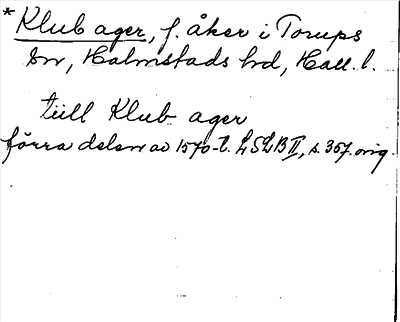 * Klub ager, f. åker i Torups
sn, Halmstads hd, Hall. l.
tiill Klub ager
förra delen av 1570-t. LSLB II, s. 367. orig.